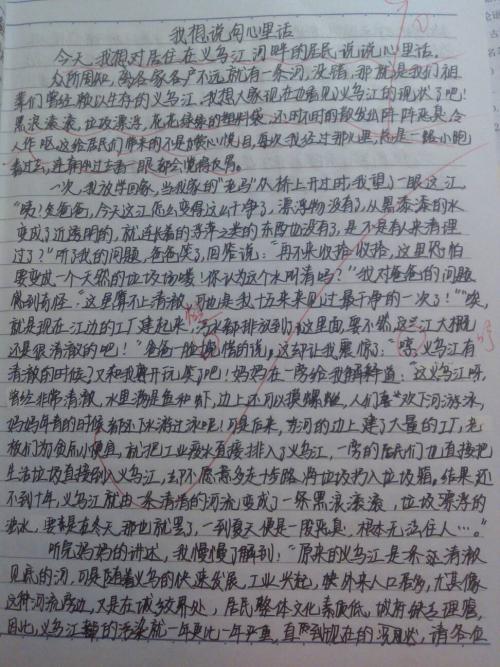 我想说句心里话
今天,我想对居住在义乌江河畔的居民说说心里话。
众所周知,离各家各户不远就有一条河,没错,那就是我们祖
辈们曾经赖以生存的义乌江,我想大家现在也看见义乌江的现状了吧!
黑浪滚滚,垃圾漂浮,花花绿绿的塑料袋,还时不时的散发出阵阵恶臭,令
人作呕,这给居民们带来的不是赏心悦目,每次我经过那里,总是一路小跑
着过去,连稍望过去看一眼都会觉得反胃。
一次,我放学回家,当我家的"宝马"从桥上开过时,我望了一眼这江,
"咦?爸爸,今天这江怎么变得这么干净了,漂浮物没有了,从黑漆漆的水
变成了近透明的,就连长着的浮萍之类的东西也没有了,是不是有人来清理
过了?"听了我的问题,爸爸笑了,回答说:"再不来收拾收拾,这里恐怕
要变成一个天然的垃圾场喽!你认为这个水叫清吗?""我对爸爸的问题
感到奇怪:"这里算不上清澈,可也是我十五年来见过最干净的一次了!""唉,
就是现在江边的工厂建起来,污水都排放到了这里面,要不然,这江大概
还是很清澈的吧!"爸爸一脸惋惜的说,这却让我震惊了:"嘻,义乌江有
清澈的时候?又和我寻开玩笑了吧!妈妈在一旁给我解释道:"这义乌江呀,
曾经非常清澈,水里满是鱼和虾,边上还可以摸螺蛳,人们喜欢下河游泳,
妈妈年青的时候都还下水游过泳呢!可是后来,旁河的边上建了大量的工厂,老
板们为贪后小便宜,就把工业废水直接排入了义乌江,一旁的居民们也直接把
生活垃圾直接倒入义乌江,却不愿意多走十步路,将垃圾扔入垃圾箱,结果还
不到十年,义乌江就由一条清清的河流变成了一条黑浪滚滚,垃圾漂浮的
污水,要都是在冬天,那也就罢了,一到夏天便是一股恶臭,根本无法住人…。"
听完妈妈的讲述,我慢慢了解到:"原来的义乌江是条清澈
见底的河,可是随着义乌的快速发展,工业兴起,使外来人口居多,尤其像
这种河流旁边,又是在城乡交界处,居民整体文化素质低,政府缺乏理管,
因此,义乌江的污染就一年更比一年严重,直至到现在的现状,请各位